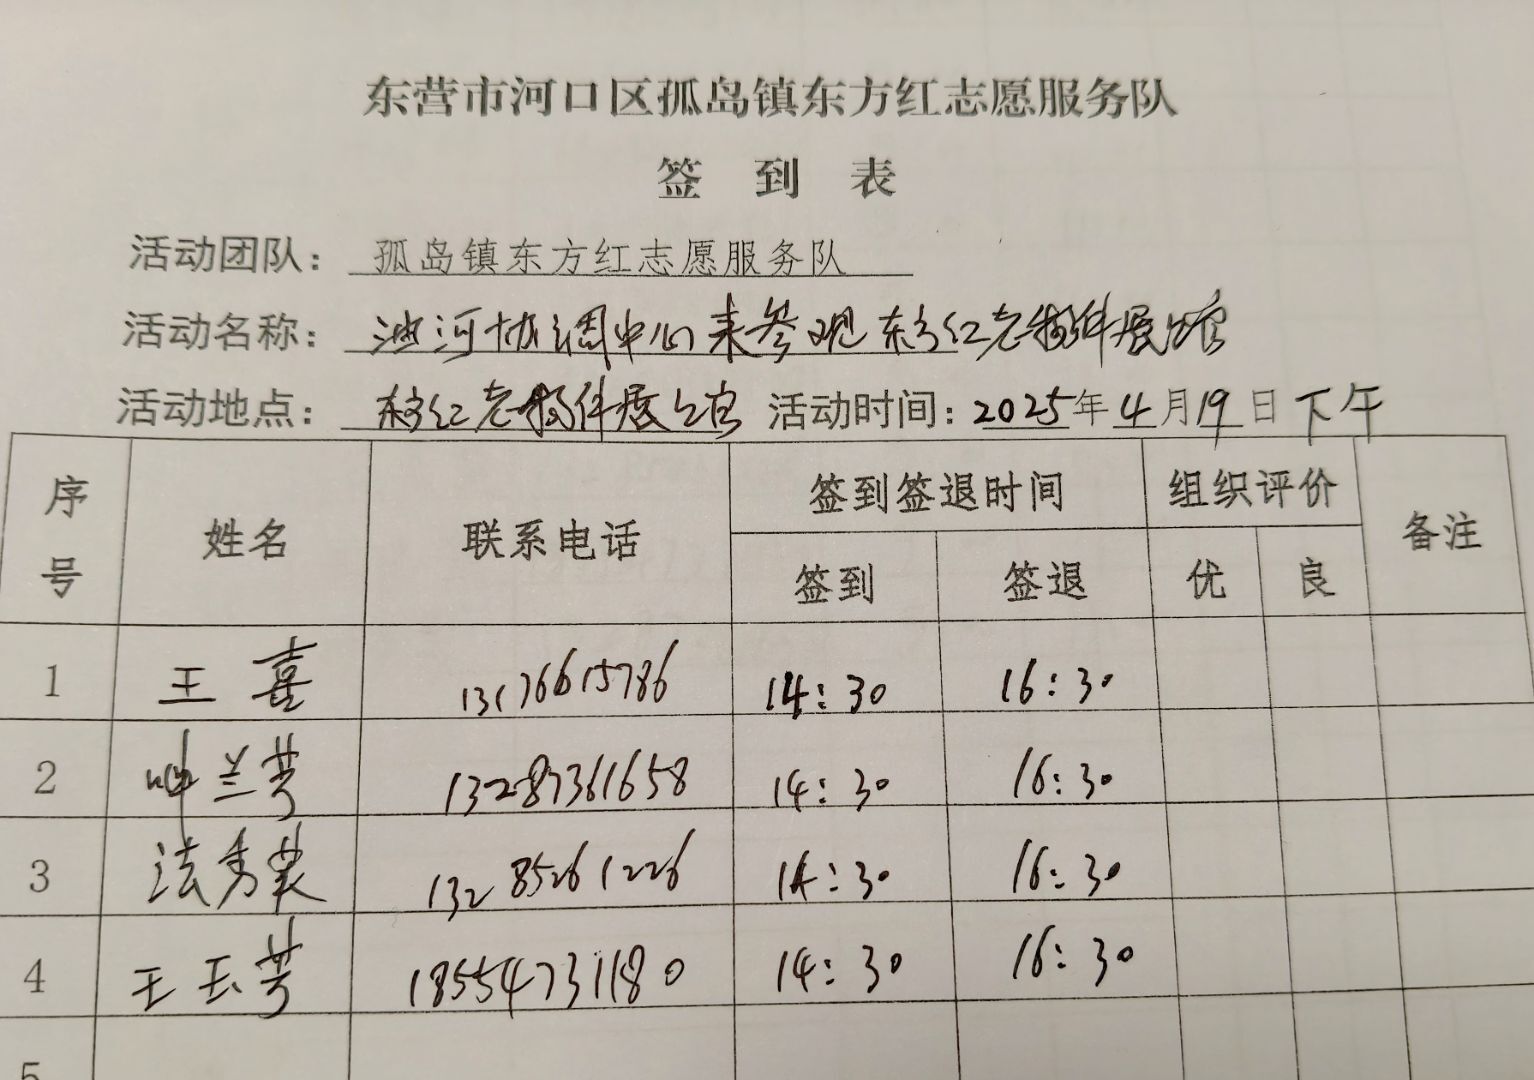 东营市河口区孤岛镇东方红志愿服务队
签 到 表
活动团队: 孤岛镇东方红志愿服务队
活动名称: 油河协调中心来参观东方红老物件展馆
活动地点: 东方红老物件展馆 活动时间: 2025年4月19日下午
序号 姓名 联系电话 签到签退时间 组织评价 备注
签到 签退 优 良
1 王喜 13176615786 14:30 16:30
2 兰芳 13287361658 14:30 16:30
3 法秀 13285261226 14:30 16:30
4 王玉芳 18554731180 14:30 16:30
5